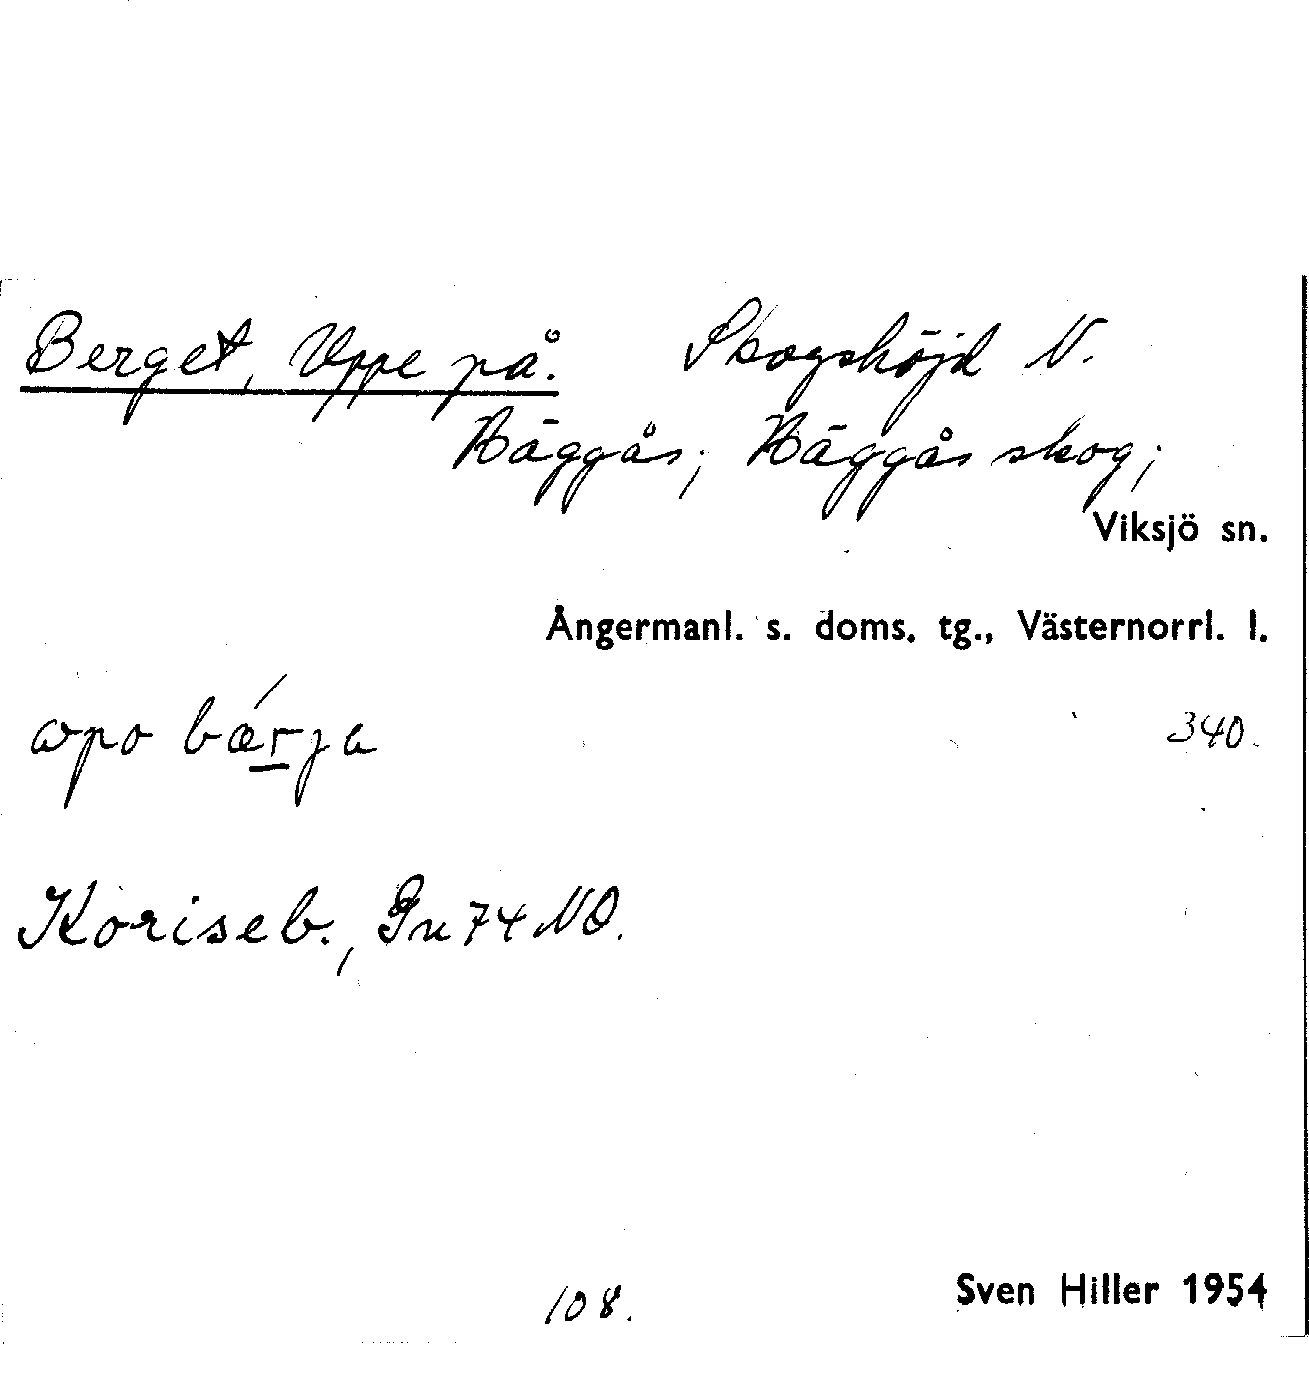 Berget, Uppe på. Skogshöjd N.
Häggås; Häggås skog;
Viksjö sn.
Ångermanl. s. doms. tg., Västernorrl. l.
340.
Koriseb., Gn 74 NO.
108.
Sven Hiller 1954